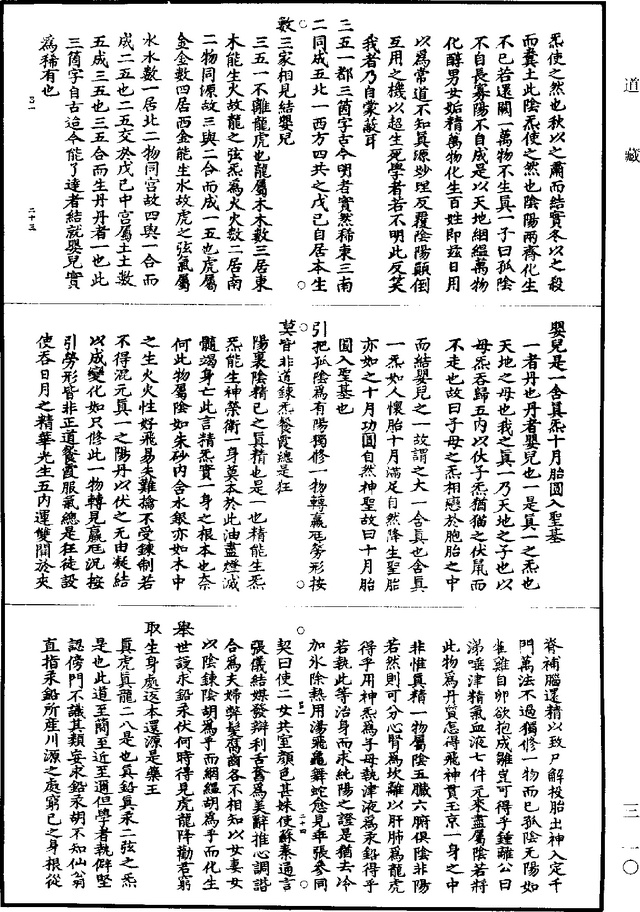 道藏
炁使之然也秋以之肅而結實冬以之殺
而蠹土此陰炁使之然也陰陽兩齊化生
不已若還闕一萬物不生真一子曰孤陰
不自長寡陽不自成是以天地絪縕萬物
化醇男女姤精萬物化生百姓即兹日用
以為常道不知真源妙理反覆陰陽顛倒
互用之機以超生死學者若不明此反笑
我者乃自蒙蔽耳
三五一都三箇字古今明者實然稀東三南
二同成五北一西方四共之戊己自居本生
數三家相見結嬰兒
三五一不離龍虎也龍屬木木數三居東
木能生火故龍之弦炁為火火數二居南
二物同源故三與二合而成一五也虎屬
金金數四居西金能生水故虎之弦氣屬
水水數一居北二物同宫故四與一合而
成二五也二五交於戊己中宫屬土土數
五成三五也三五合而生丹丹者一也此
三箇字自古迨今能了達者結就嬰兒實
為稀有也
二十五
嬰兒是一含真炁十月胎圓入聖基
一者丹也丹者嬰兒也一是真一之炁也
天地之母也我之真一乃天地之子也以
母炁吞歸五内以伏子炁猶猫之伏鼠而
不走也故曰子母之炁相戀於胞胎之中
而結嬰兒之一故謂之大一含真也含真
一炁如人懷胎十月滿足自然降生聖胎
亦如之十月功圓自然神聖故曰十月胎
圓入聖基也
引把孤陰為有陽獨修一物轉羸尪勞形按
莫皆非道鍊炁餐霞總是狂
陽裏陰精己之真精也是一也精能生炁
炁能生神榮衛一身莫本於此油盡燈滅
髓竭身亡此言精炁實一身之根本也奈
何此物屬陰如朱砂内含水銀亦如木中
之生火火性好飛易失難擒不受鍊制若
不得混元真一之陽丹以伏之无由凝結
以成變化如只修此一物轉見羸尪況按
引勞形皆非正道餐霞服氣總是狂徒設
使吞日月之精華光生五内運雙關於夾
脊補腦還精以致尸解投胎出神入定千
門萬法不過獨修一物而已孤陰无陽如
雀雞自卵欲抱成雛豈可得乎鍾離公曰
涕唾津精氣血液七件元來盡屬陰若將
此物為丹質怎得飛神貫玉京一身之中
非惟真精一物屬陰五臟六腑俱陰非陽
若然則可分心腎為坎離以肝肺為龍虎
得乎用神炁為子母執津液為汞鉛得乎
若執此等治身而求純陽之證是猶去冷
加氷除熱用湯飛龜舞蛇愈見乖張參同
契曰使二女共室顔色甚姝使蘇秦通言
張儀結媒發辯利舌奮為美辭推心調諧
合為夫婦弊髮腐齒各不相知以女妻女
以陰鍊陰胡為乎而絪縕胡為乎而化生
舉世説求鉛汞伏何時得見虎龍降勸君窮
取生身處返本還源是藥王
真虎真龍二八是也真鉛真汞二弦之炁
是也此道至簡至近至邇但學者執僻堅
認傍門不識其類妄求鉛汞胡不知仙翁
直指汞鉛所産川源之處窮己之身根從
二十四
三一〇